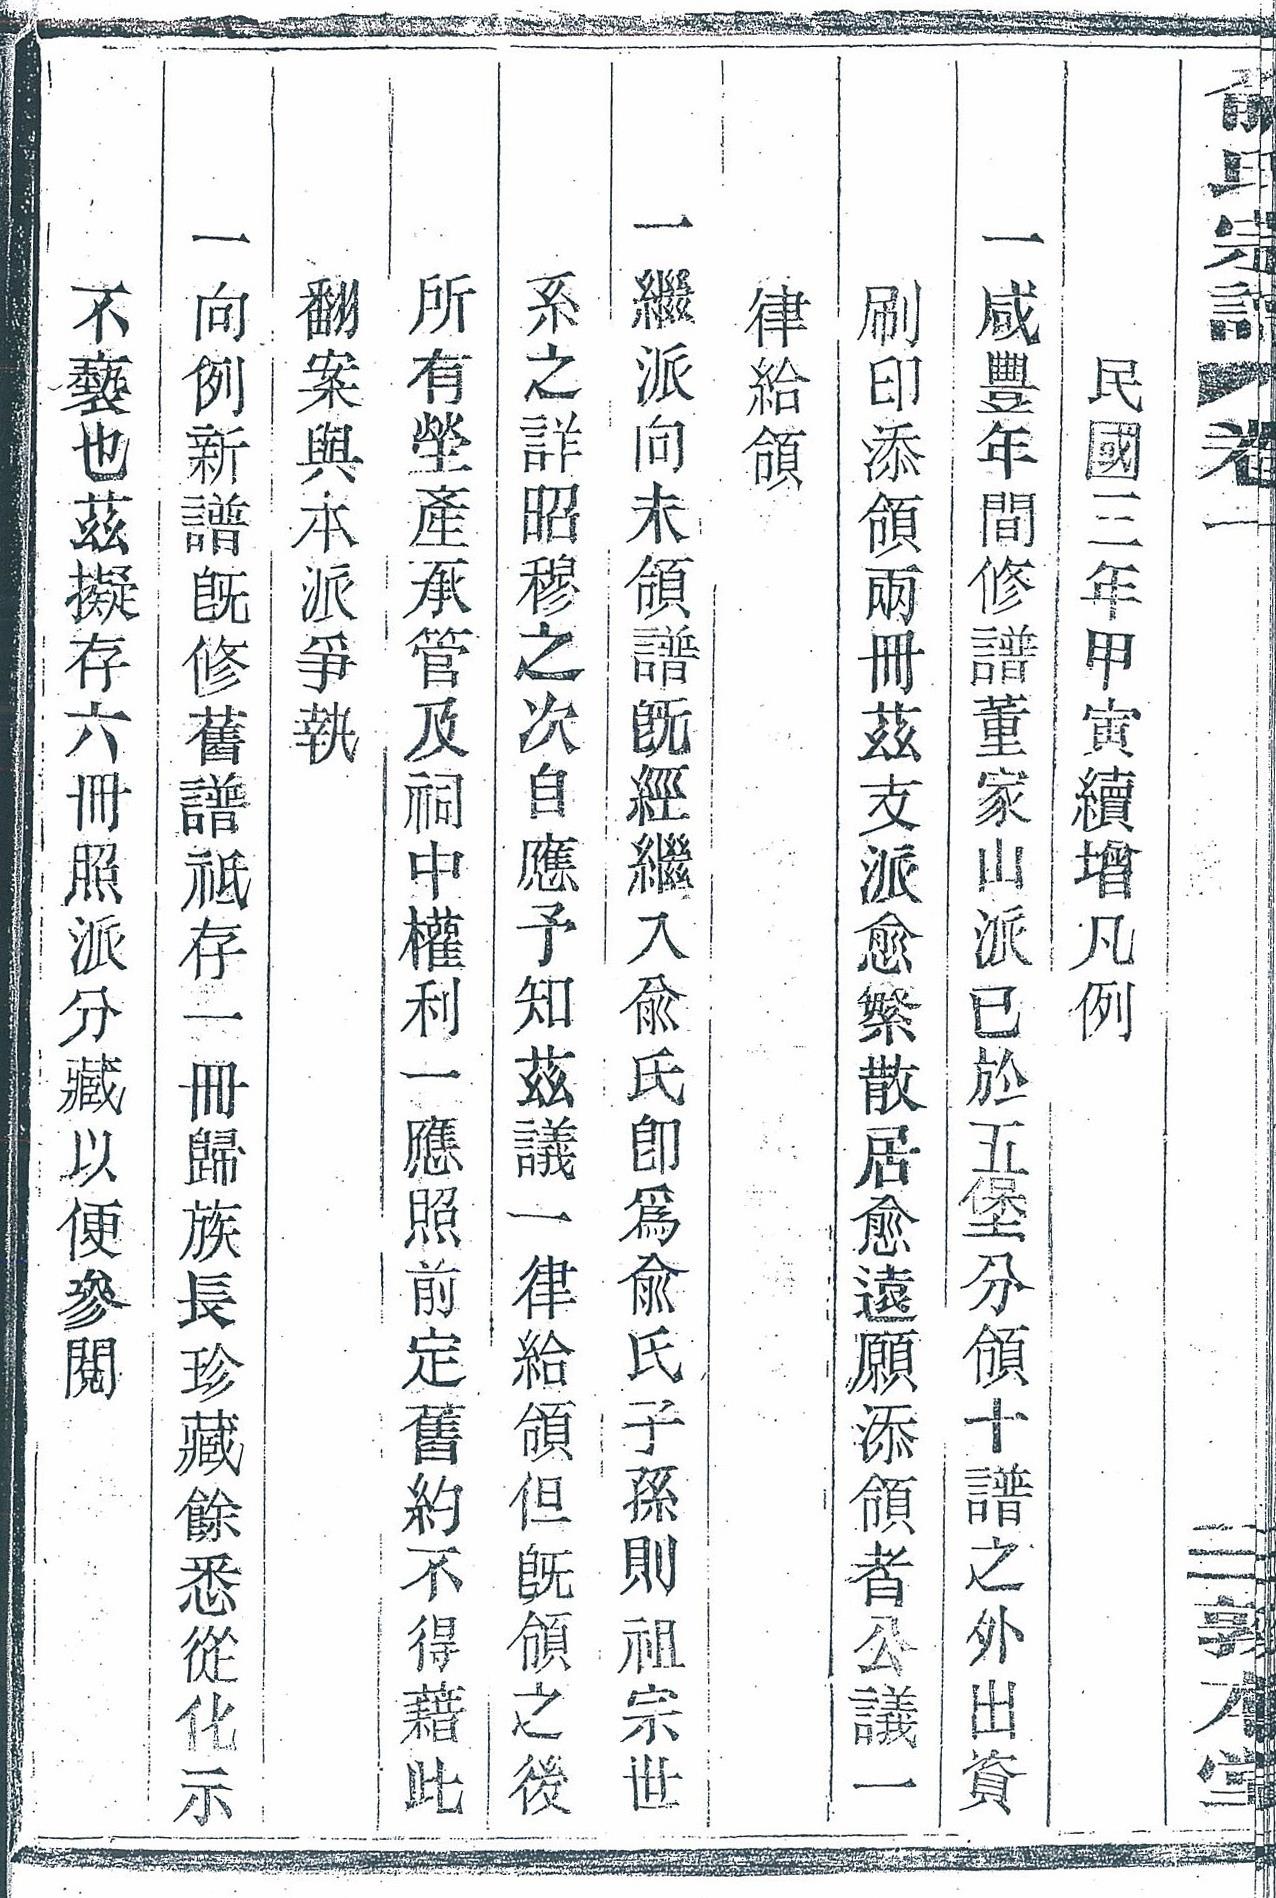 俞氏宗譜 卷一
三 敦本堂
民國三年甲寅續增凡例
一咸豐年間修譜董家山派已於五堡分領十譜之外出資
刷印添領兩冊茲支派愈繁散居愈遠願添領者公議一
律給領
一繼派向未領譜旣經繼入俞氏卽爲俞氏子孫則祖宗世
系之詳昭穆之次自應予知茲議一律給領但旣領之後
所有塋產承管及祠中權利一應照前定舊約不得藉此
翻案與本派爭執
一向例新譜旣修舊譜祗存一冊歸族長珍藏餘悉從化示
不褻也茲擬存六冊照派分藏以便參閱